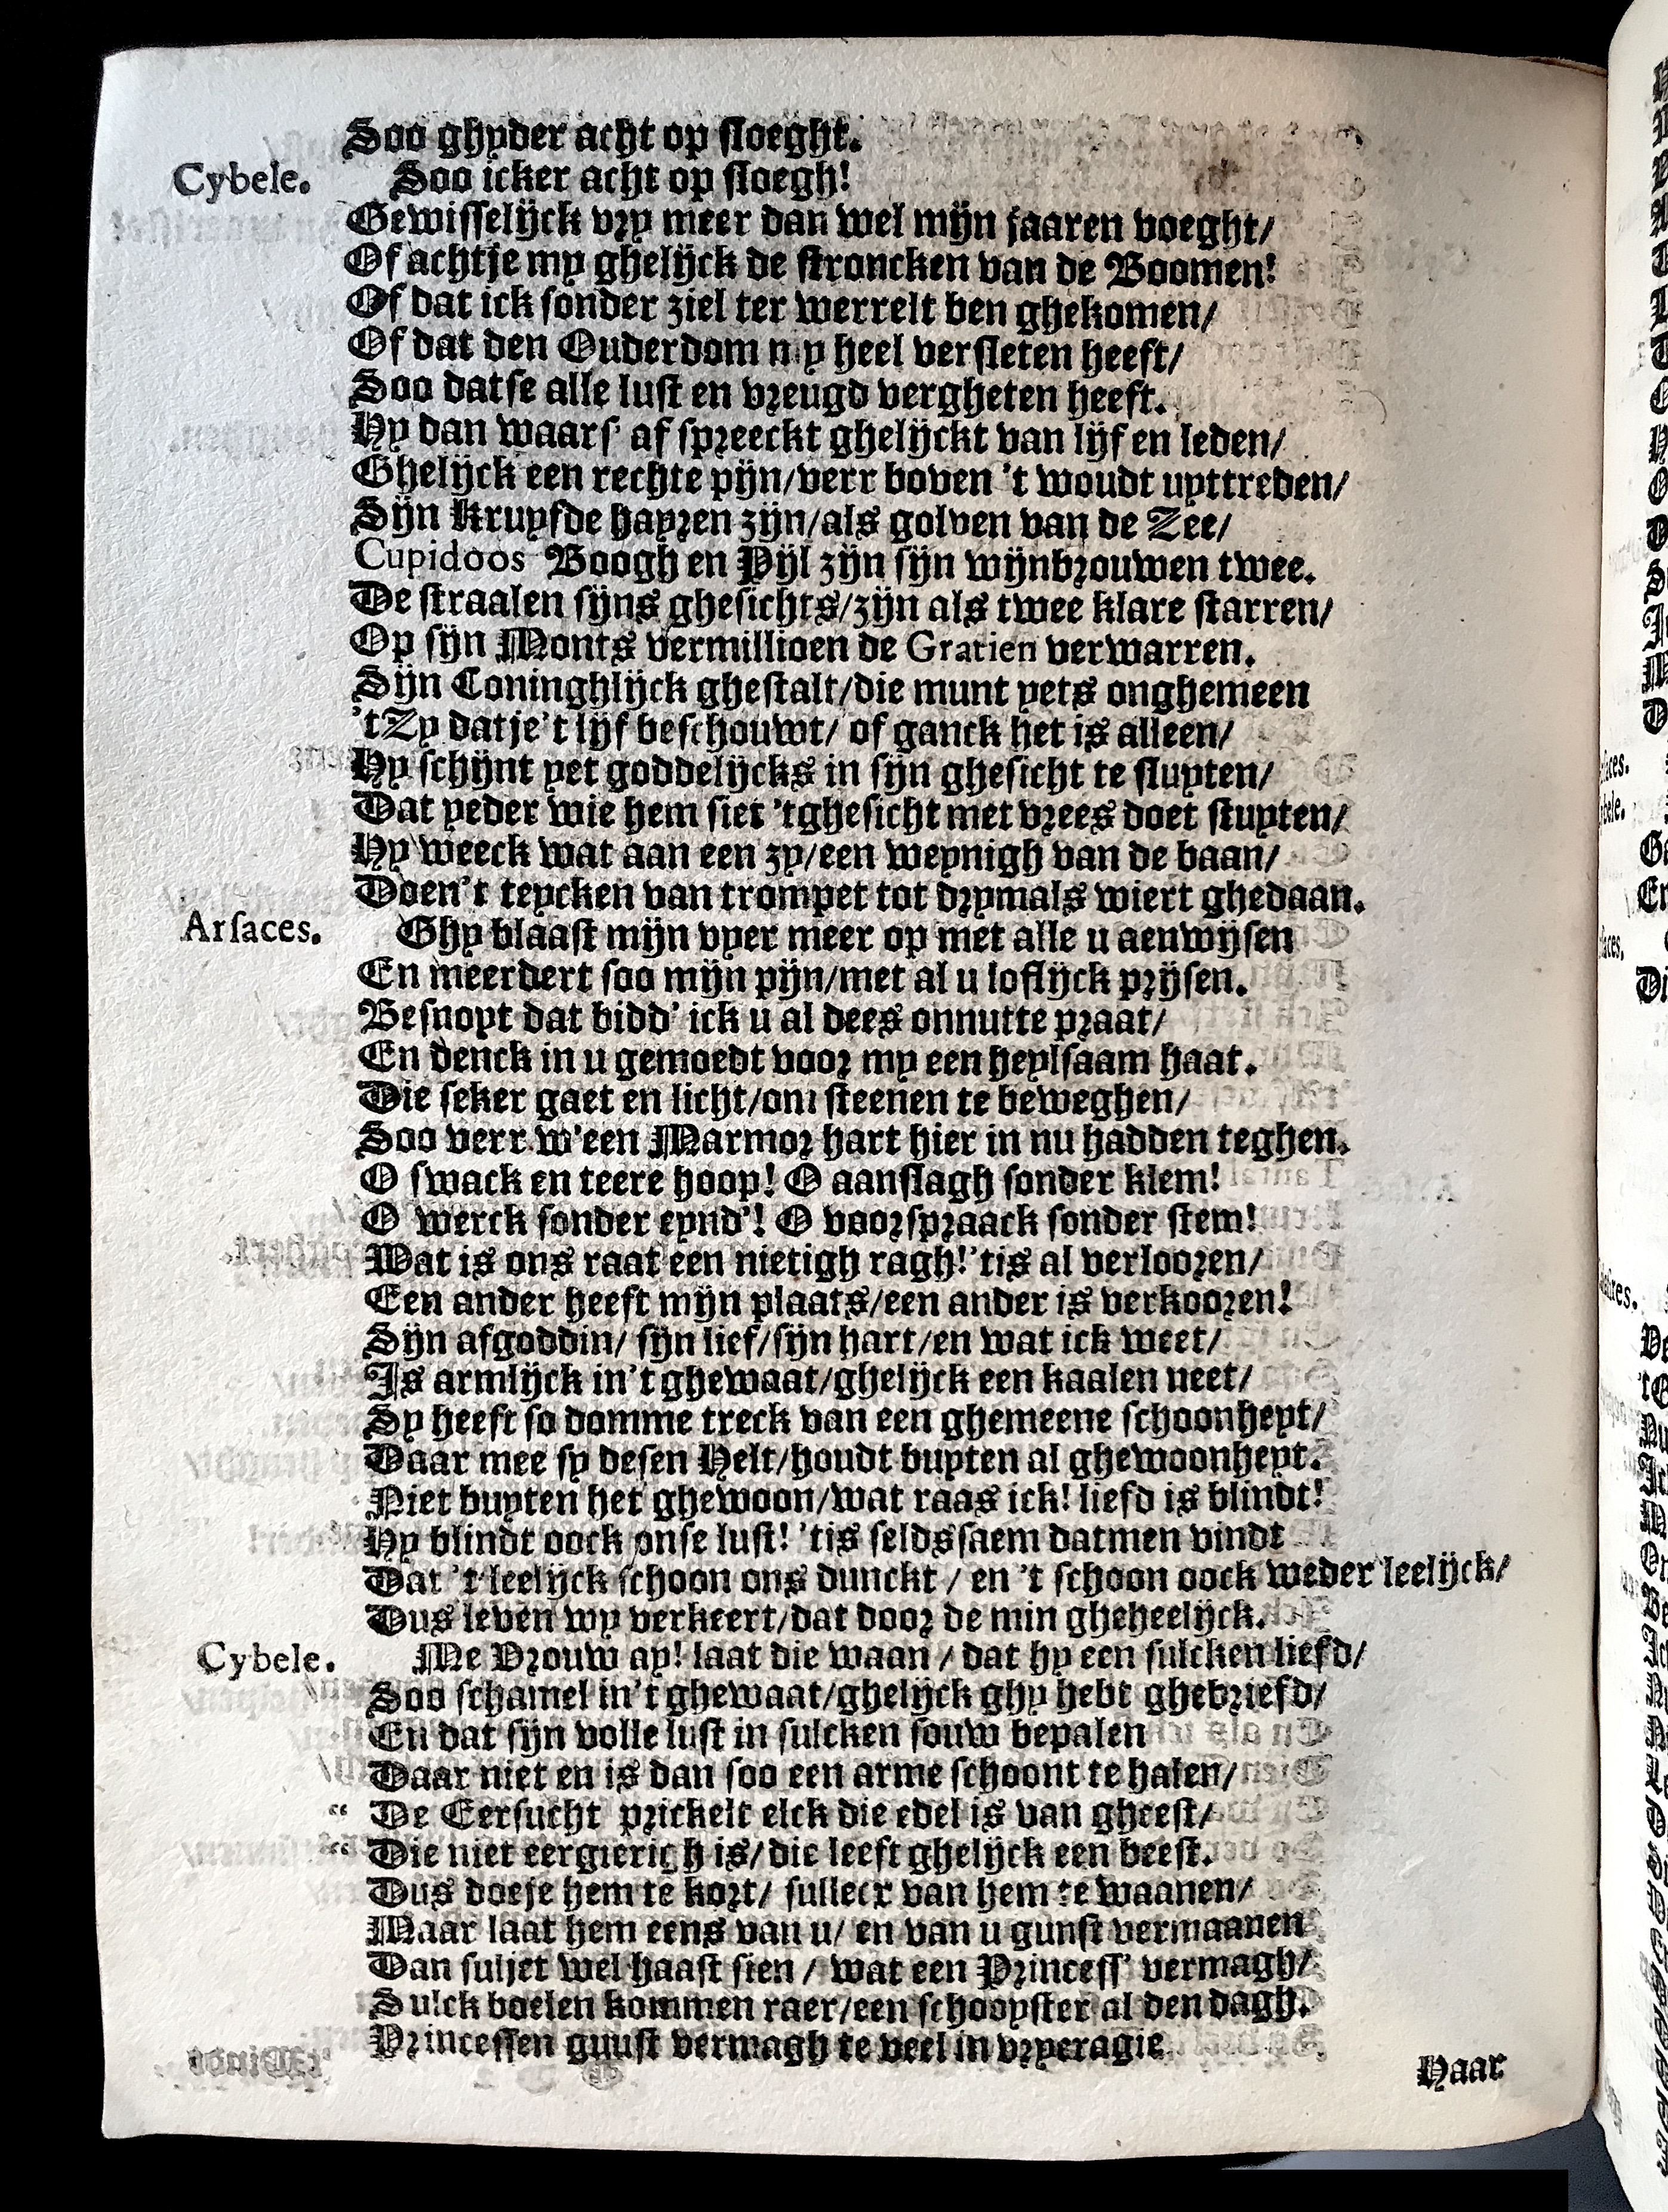 Soo ghyder acht op sloeght.
Cybele. Soo icker acht op sloegh!
Gewisselijck vry meer dan wel mijn jaaren voeght/
Of achtje my ghelijck de stroncken van de Boomen!
Of dat ick sonder ziel ter werrelt ben ghekomen/
Of dat den Ouderdom my heel versleten heeft/
Soo datse alle lust en vreugd vergheten heeft.
Hy dan waars' af spreeckt ghelijckt van lijf en leden/
Ghelijck een rechte pijn/verr boven 't woudt uyttreden/
Sijn kruysde hayren zijn/als golven van de Zee/
Cupidoos Boogh en Pijl zijn sijn wijnbrouwen twee.
De straalen sijns ghesichts/zijn als twee klare starren/
Op sijn Monts vermillioen de Gratien verwarren.
Sijn Coninghlijck ghestalt/die munt yets onghemeen
't Zy datje 't lijf beschouwt/ of ganck het is alleen/
Hy schijnt yet goddelijcks in sijn ghesicht te sluyten/
Dat yeder wie hem siet 't ghesicht met vrees doet stuyten/
Hy weeck wat aan een zy/een weynigh van de baan/
Doen 't teycken van trompet tot drymals wiert ghedaan.
Arsaces. Ghy blaast mijn vyer meer op met alle u aenwijsen
En meerdert soo mijn pijn/met al u loflijck prijsen.
Besnoyt dat bidd' ick u al dees onnutte praat/
En denck in u gemoedt voor my een heylsaam haat.
Die seker gaet en licht/om steenen te beweghen/
Soo verr w'een Marmor hart hier in nu hadden teghen.
O swack en teere hoop! O aanslagh sonder klem!
O werck sonder eynd'! O voorspraack sonder stem!
Wat is ons raat een nietigh ragh! 'tis al verlooren/
Een ander heeft mijn plaats/een ander is verkooren!
Sijn afgoddin/ sijn lief/sijn hart/en wat ick weet/
Is armlijck in 't ghewaat/ghelijck een kaalen neet/
Sy heeft so domme treck van een ghemeene schoonheyt/
Daar mee sy desen Helt/houdt buyten al ghewoonheyt.
Niet buyten het ghewoon/wat raas ick! liefd is blindt!
Hy blindt oock onse lust! 'tis seldssaem datmen vindt
Dat 't leelijck schoon ons dunckt / en 't schoon oock weder leelijck/
Dus leven wy verkeert/dat door de min gheheelijck.
Cybele. Me Vrouw ay! laat die waan / dat hy een sulcken liefd/
Soo schamel in 't ghewaat/ghelijck ghy hebt ghebriefd/
En dat sijn volle lust in sulcken souw bepalen
Daar niet en is dan soo een arme schoont te halen/
“ De Eersucht prickelt elck die edel is van gheest/
“ Die niet eergierigh is/ die leeft ghelijck een beest.
Dus doeje hem te kort/ sulleck van hem te waanen/
Maar laat hem eens van u/ en van u gunst vermaanen
Dan suljet wel haast sien / wat een Princess' vermagh/
Sulck boelen kommen raer/een schooyster al den dagh.
Princessen guust vermagh te veel in vryeragie
Haar